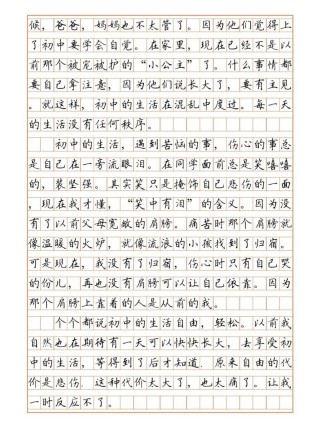 候，爸爸，妈妈也不太管了。因为他们觉得上
了初中要学会自觉。在家里，现在已经不是以
前那个被宠被护的“小公主”了。什么事情都
要自己拿注意，因为他们说长大了，要有主见
。就这样，初中的生活在混乱中度过。每一天
的生活没有任何秩序。
初中的生活，遇到苦恼的事，伤心的事总
是自己在一旁流眼泪。在同学面前总是笑嘻嘻
的，装坚强。其实笑只是掩饰自己悲伤的一面
，现在我才懂，“笑中有泪”的含义。因为没
有了以前父母宽敞的肩膀。痛苦时那个肩膀就
像温暖的火炉，就像流浪的小孩找到了归宿。
可是现在，我没有了归宿，伤心时只有自己哭
的份儿，再也没有肩膀可以让自己依靠。因为
那个肩膀上靠着的人是从前的我。
个个都说初中的生活自由，轻松。以前我
自然也在期待有一天可以快快长大，去享受初
中的生活，等得到了后才知道 原来自由的代
价是悲伤 这种代价太大了，也太痛了。让我
一时反应不了。